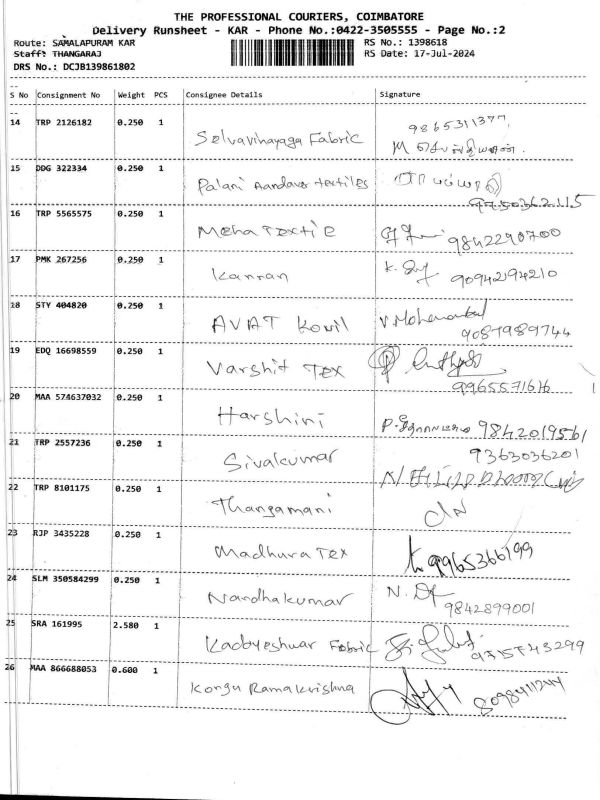 THE PROFESSIONAL COURIERS, COIMBATORE
Delivery Runsheet - KAR - Phone No.:0422-3505555 - Page No.:2
Route: SAMALAPURAM KAR RS No.: 1398618
Staff: THANGARAJ RS Date: 17-Jul-2024
DRS No.: DCJB139861802
S No Consignment No Weight PCS Consignee Details Signature
14 TRP 2126182 0.250 1 Selvavinayaga Fabric 9865311377
15 DDG 322334 0.250 1 Palani Aandavar textiles
9750362115
16 TRP 5565575 0.250 1 Meha Textile 9842290700
17 PMK 267256 0.250 1 Kannan 9094294210
18 STY 404820 0.250 1 AVAT Kovil
9087989744
19 EDQ 16698559 0.250 1 Varshit Tex
9965571616
20 MAA 574637032 0.250 1 Harshini 9842019561
21 TRP 2557236 0.250 1 Sivakumar 9363036201
22 TRP 8101175 0.250 1 Thangamani
23 RJP 3435228 0.250 1 Madhura Tex 9965366199
24 SLM 350584299 0.250 1 Nandhakumar
9842899001
25 SRA 161995 2.580 1 Fabric 9715743299
26 MAA 866688053 0.600 1 Kongu Ramakrishna